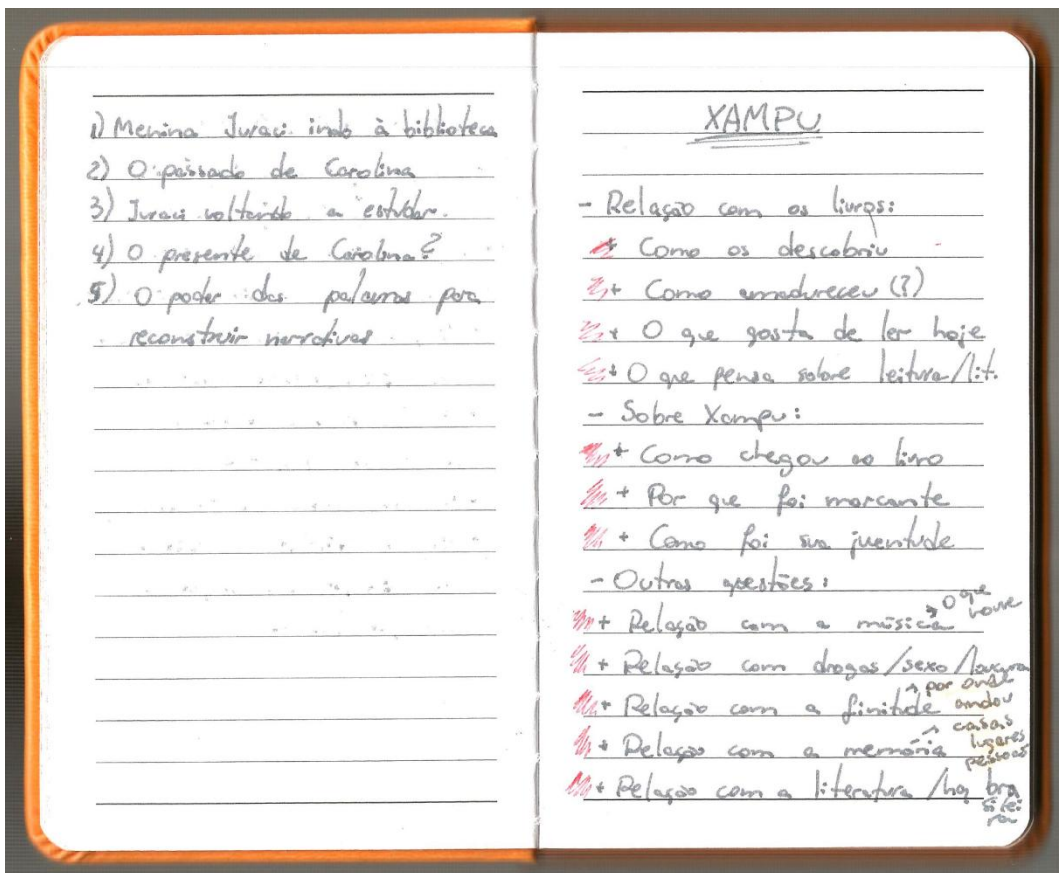 1) Menina Juraci indo à biblioteca
2) O passado de Carolina
3) Juraci voltando a estudar.
4) O presente de Carolina?
5) O poder das palavras para
reconstruir narrativas
XAMPU
- Relação com os livros:
+ Como os descobriu
+ Como amadureceu (?)
+ O que gosta de ler hoje
+ O que pensa sobre leitura/lit.
- Sobre Xampu:
+ Como chegou ao livro
+ Por que foi marcante
+ Como foi sua juventude
- Outras questões:
+ Relação com a música → O que houve
+ Relação com drogas/sexo/loucura
+ Relação com a finitude → por onde andou
+ Relação com a memória → casas lugares pessoas
+ Relação com a literatura /hq brasileira